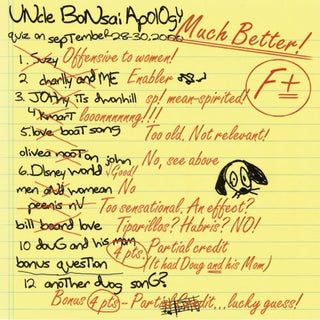 UNcle BoNsai ApOlOgy
Much Better!
quiz on september 28-30, 2000
F+
1. Suzy Offensive to women!
2. charlly and ME Enabler
3. JOhny its dwonhill sp! mean-spirited!
4. Kmart looonnnnnng!!!
5. love boat song Too old. Not relevant!
olivea noot on john No, see above
6. Disney world Good!
men and womean No
peenis nV Too sensational. An effect?
bill board love Tiparillos? Hubris? NO!
10 douG and his mom 4 pts. Partial credit
bonus question (It had Doug and his Mom)
12 another doug sonG?
Bonus 4 pts - Partial Credit...lucky guess!